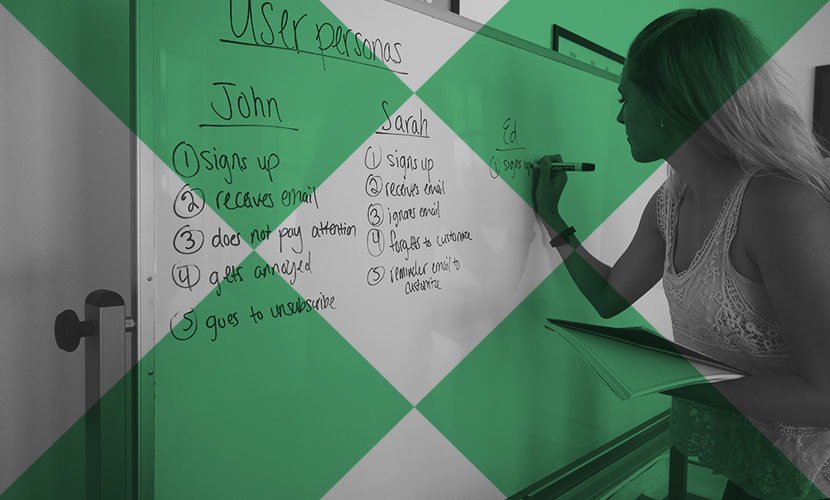 User personas
John
① signs up
② receives email
③ does not pay attention
④ gets annoyed
⑤ goes to unsubscribe
Sarah
① signs up
② receives email
③ ignores email
④ forgets to customize
⑤ reminder email to
customize
Ed
① signs up